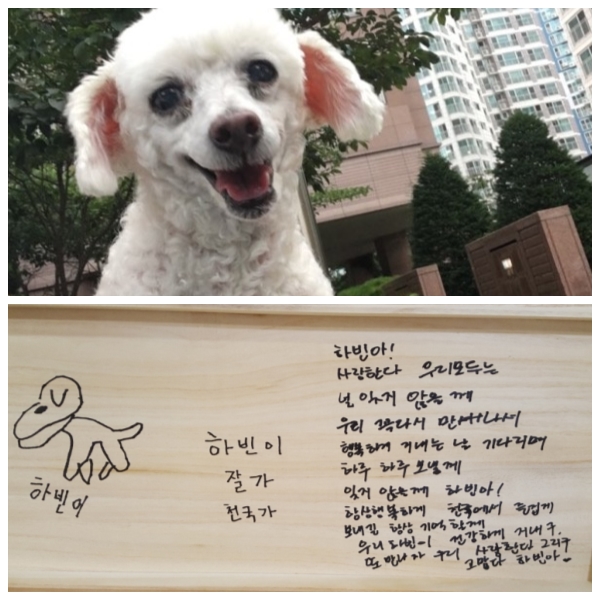 하빈이
하빈이
잘가
천국가
하빈아!
사랑한다 우리모두는
널 잊지 않을 께
우리 꼭다시 만나
행복하게 지내는 날 기다리며
하루 하루 보낼께
잊지 않는게 하빈아!
항상행복하게 천국에서 즐겁게
보내길 항상 기억할께
우리 하빈이 건강하게 지내구.
또 만나자 우리 사랑한단 그리구
고맙다 하빈아~